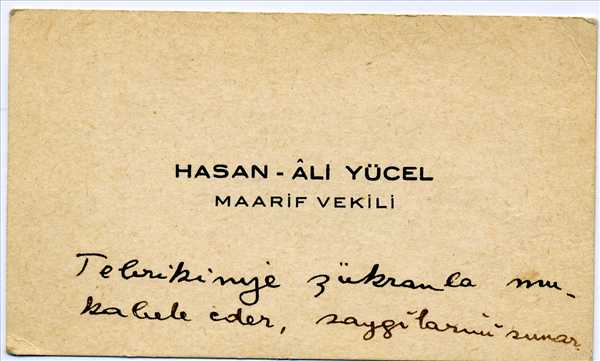 HASAN - ÂLİ YÜCEL
MAARİF VEKİLİ
Tebrikinize şükranla mu-
kabele eder, saygılarını sunar.